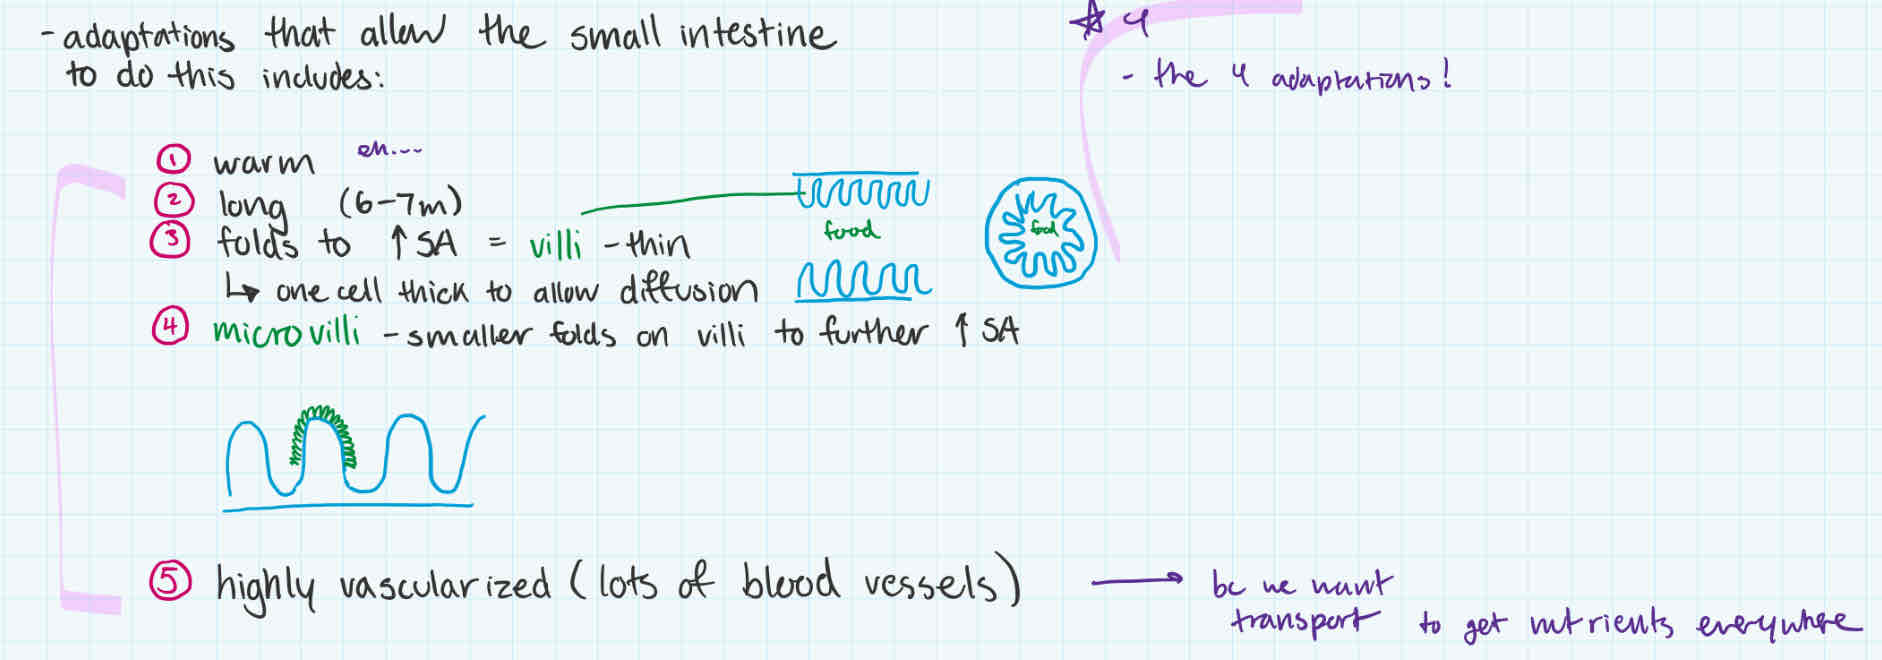 - adaptations that allow the small intestine
to do this includes:
☆ 4
- the 4 adaptations!
① warm eh...
② long (6-7m)
③ folds to ↑ SA = villi - thin
↳ one cell thick to allow diffusion
food
food
④ microvilli - smaller folds on villi to further ↑ SA
⑤ highly vascularized (lots of blood vessels) → bc we want
transport to get nutrients everywhere